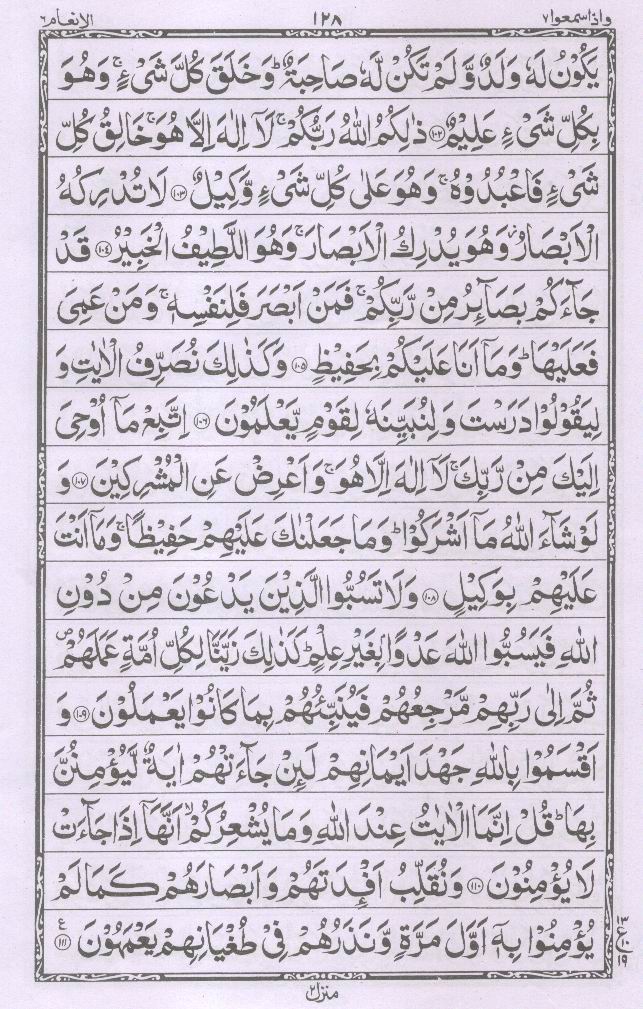 واذاسمعوا۷ ۱۲۸ الانعام۶
يَكُوْنُ لَهٗ وَلَدٌ وَّ لَمْ تَكُنْ لَّهٗ صَاحِبَةٌ ؕ وَخَلَقَ كُلَّ شَیْءٍ ۚ وَهُوَ
بِكُلِّ شَیْءٍ عَلِيْمٌ ﴿۱۰۲﴾ ذٰلِكُمُ اللّٰهُ رَبُّكُمْ ۚ لَاۤ اِلٰهَ اِلَّا هُوَ ۚ خَالِقُ كُلِّ
شَیْءٍ فَاعْبُدُوْهُ ۚ وَهُوَ عَلٰى كُلِّ شَیْءٍ وَّكِيْلٌ ﴿۱۰۳﴾ لَا تُدْرِكُهُ
الْاَبْصَارُ ؗ وَهُوَ يُدْرِكُ الْاَبْصَارَ ۚ وَهُوَ اللَّطِيْفُ الْخَبِيْرُ ﴿۱۰۴﴾ قَدْ
جَآءَكُمْ بَصَآئِرُ مِنْ رَّبِّكُمْ ۚ فَمَنْ اَبْصَرَ فَلِنَفْسِهٖ ۚ وَمَنْ عَمِیَ
فَعَلَيْهَا ؕ وَمَاۤ اَنَا عَلَيْكُمْ بِحَفِيْظٍ ﴿۱۰۵﴾ وَكَذٰلِكَ نُصَرِّفُ الْاٰيٰتِ وَ
لِيَقُوْلُوْا دَرَسْتَ وَلِنُبَيِّنَهٗ لِقَوْمٍ يَّعْلَمُوْنَ ﴿۱۰۶﴾ اِتَّبِعْ مَاۤ اُوْحِیَ
اِلَيْكَ مِنْ رَّبِّكَ ۚ لَاۤ اِلٰهَ اِلَّا هُوَ ۚ وَاَعْرِضْ عَنِ الْمُشْرِكِيْنَ ﴿۱۰۷﴾ وَ
لَوْ شَآءَ اللّٰهُ مَاۤ اَشْرَكُوْا ؕ وَمَا جَعَلْنٰكَ عَلَيْهِمْ حَفِيْظًا ۚ وَمَاۤ اَنْتَ
عَلَيْهِمْ بِوَكِيْلٍ ﴿۱۰۸﴾ وَلَا تَسُبُّوا الَّذِيْنَ يَدْعُوْنَ مِنْ دُوْنِ
اللّٰهِ فَيَسُبُّوا اللّٰهَ عَدْوًۢا بِغَيْرِ عِلْمٍ ؕ كَذٰلِكَ زَيَّنَّا لِكُلِّ اُمَّةٍ عَمَلَهُمْ ۪
ثُمَّ اِلٰى رَبِّهِمْ مَّرْجِعُهُمْ فَيُنَبِّئُهُمْ بِمَا كَانُوْا يَعْمَلُوْنَ ﴿۱۰۹﴾ وَ
اَقْسَمُوْا بِاللّٰهِ جَهْدَ اَيْمَانِهِمْ لَئِنْ جَآءَتْهُمْ اٰيَةٌ لَّيُؤْمِنُنَّ
بِهَا ؕ قُلْ اِنَّمَا الْاٰيٰتُ عِنْدَ اللّٰهِ وَمَا يُشْعِرُكُمْ ۙ اَنَّهَاۤ اِذَا جَآءَتْ
لَا يُؤْمِنُوْنَ ﴿۱۱۰﴾ وَنُقَلِّبُ اَفْـِٕدَتَهُمْ وَاَبْصَارَهُمْ كَمَا لَمْ
يُؤْمِنُوْا بِهٖۤ اَوَّلَ مَرَّةٍ وَّنَذَرُهُمْ فِیْ طُغْيَانِهِمْ يَعْمَهُوْنَ ﴿۱۱۱﴾ ع
۱۳
ع۱۰
۱۹
منزل۲